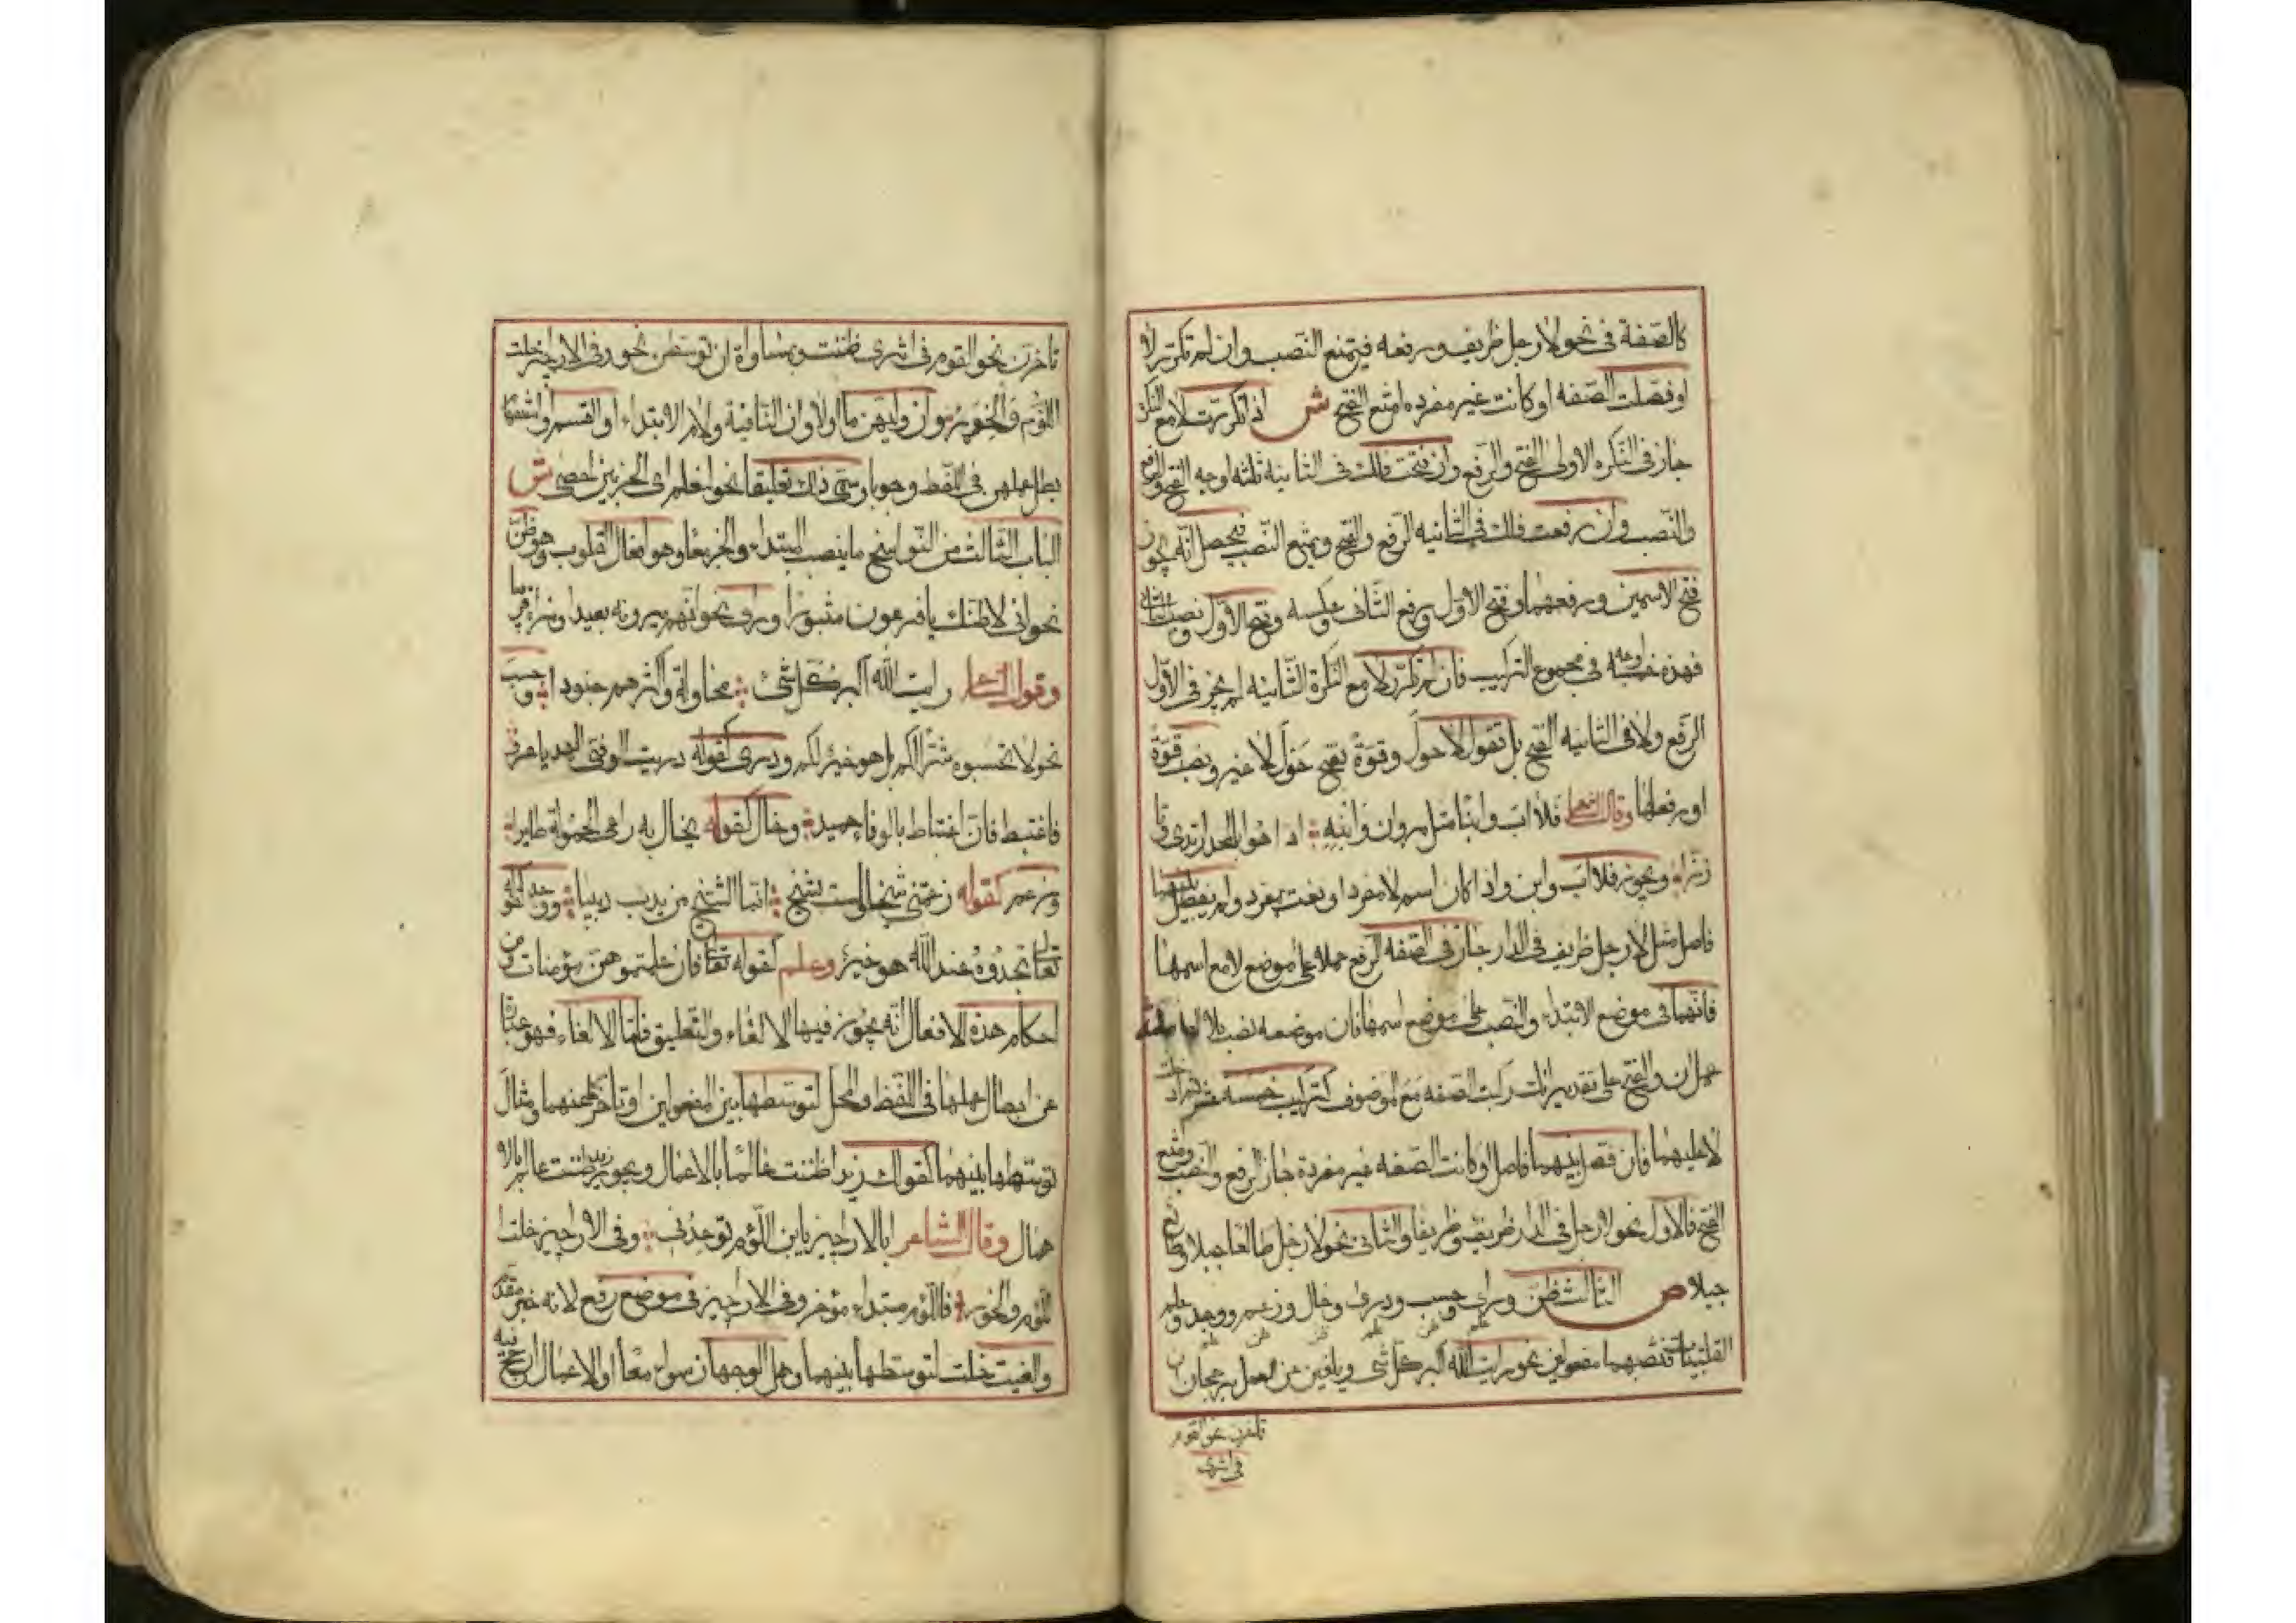 كالصفة في نحو لا رجل ظريف ورفعه فيمتنع النصب وان لم تتكرر لا
او فصلت الصفه او كانت غير مفرده امتنع الفتح ش اذا تكررت لا مع النكره
جاز في النكره الاولى الفتح والرفع وان فتحت فلك في الثانيه ثلثه اوجه الفتح والرفع
والنصب وان رفعت فلك في الثانيه الرفع والفتح ويمتنع النصب فيحصل انه يجوز
فتح الاسمين ورفعهما وفتح الاول ورفع الثاني وعكسه وفتح الاول ونصب الثاني
فهذه خمسة اوجه في مجموع التركيب فان لم تتكرر لا مع النكرة الثانيه لم يجز في الاول
الرفع ولا في الثانيه الفتح بل تقول لا حول وقوة بفتح حول لا غير ونصب قوة
او رفعها وقال الشاعر فلا اب وابنا مثل مروان وابنه اذا هو بالمجد ارتدى وتا
زرا ويجوز فلا اب وابن واذا كان اسم لا مفردا ونعت بمفرد ولم يفصل بينهما
فاصل مثل لا رجل ظريف في الدار جاز في الصفه الرفع حملا على موضع لا مع اسمها
فانهما في موضع الابتداء والنصب على موضع اسمها فان موضعه نصب بلا العاملة
عمل ان والفتح على تقدير انك ركبت الصفه مع الموصوف كتركيب خمسة عشر ثم ادخلت
لا عليهما فان فصل بينهما فاصل او كانت الصفه غير مفردة جاز الرفع والنصب وامتنع
الفتح فالاول نحو لا رجل في الدار ظريف وظريفا والثاني نحو لا رجل طالعا جبلا وطالع
جبلا ص الثالث ظن وراى وحسب ودرى وخال وزعم ووجد وعلم
القلبيات فتنصبهما مفعولين نحو رايت الله اكبر كل شي ويلغين عن العمل برجحان ان
تاخرن نحو القوم
في اثري
تاخرن نحو القوم في اثري ظننت وبمساواة ان توسطن نحو وفي الاراجيز خلت
اللؤم والخور وان وليهن ما او لا او ان النافية ولام الابتداء او القسم او استفهام
بطل عملهن في اللفظ وجوبا وسمي ذلك تعليقا نحو لنعلم اي الحزبين احصى ش
الباب الثالث من النواسخ ما ينصب المبتداء والخبر معا وهو افعال القلوب وهو ظن
نحو اني لاظنك يا فرعون مثبورا وراى نحو انهم يرونه بعيدا ونراه قريبا
وقول الشاعر رايت الله اكبر كل شئ محاولة واكثرهم جنودا وحسب
نحو لا تحسبوه شرا لكم بل هو خير لكم ودرى كقوله دريت الوفي العهد يا عرو
فاغتبط فان اغتباطا بالوفاء حميد وخال كقوله يخال به راعي الحمولة طايرا
وزعم كقوله زعمتني شيخا ولست بشيخ انما الشيخ من يدب دبيبا ووجد كقوله
تعالى تجدوه عند الله هو خير وعلم كقوله تعالى فان علمتموهن مؤمنات ومن
احكام هذه الافعال انه يجوز فيها الالغاء والتعليق فاما الالغاء فهو عبارة
عن ابطال عملها في اللفظ والمحل لتوسطها بين المفعولين او تاخرها عنهما ومثال
توسطها بينهما كقولك زيدا ظننت عالما بالاعمال ويجوز زيد ظننت عالم بالا
همال وقال الشاعر ابالاراجيز يابن اللؤم توعدني وفي الاراجيز خلت
اللؤم والخور فاللؤم مبتداء مؤخر وفي الاراجيز في موضع رفع لانه خبر مقدم
والغيت خلت لتوسطها بينهما وهل الوجهان سواء معا او الاعمال ارجح فيه